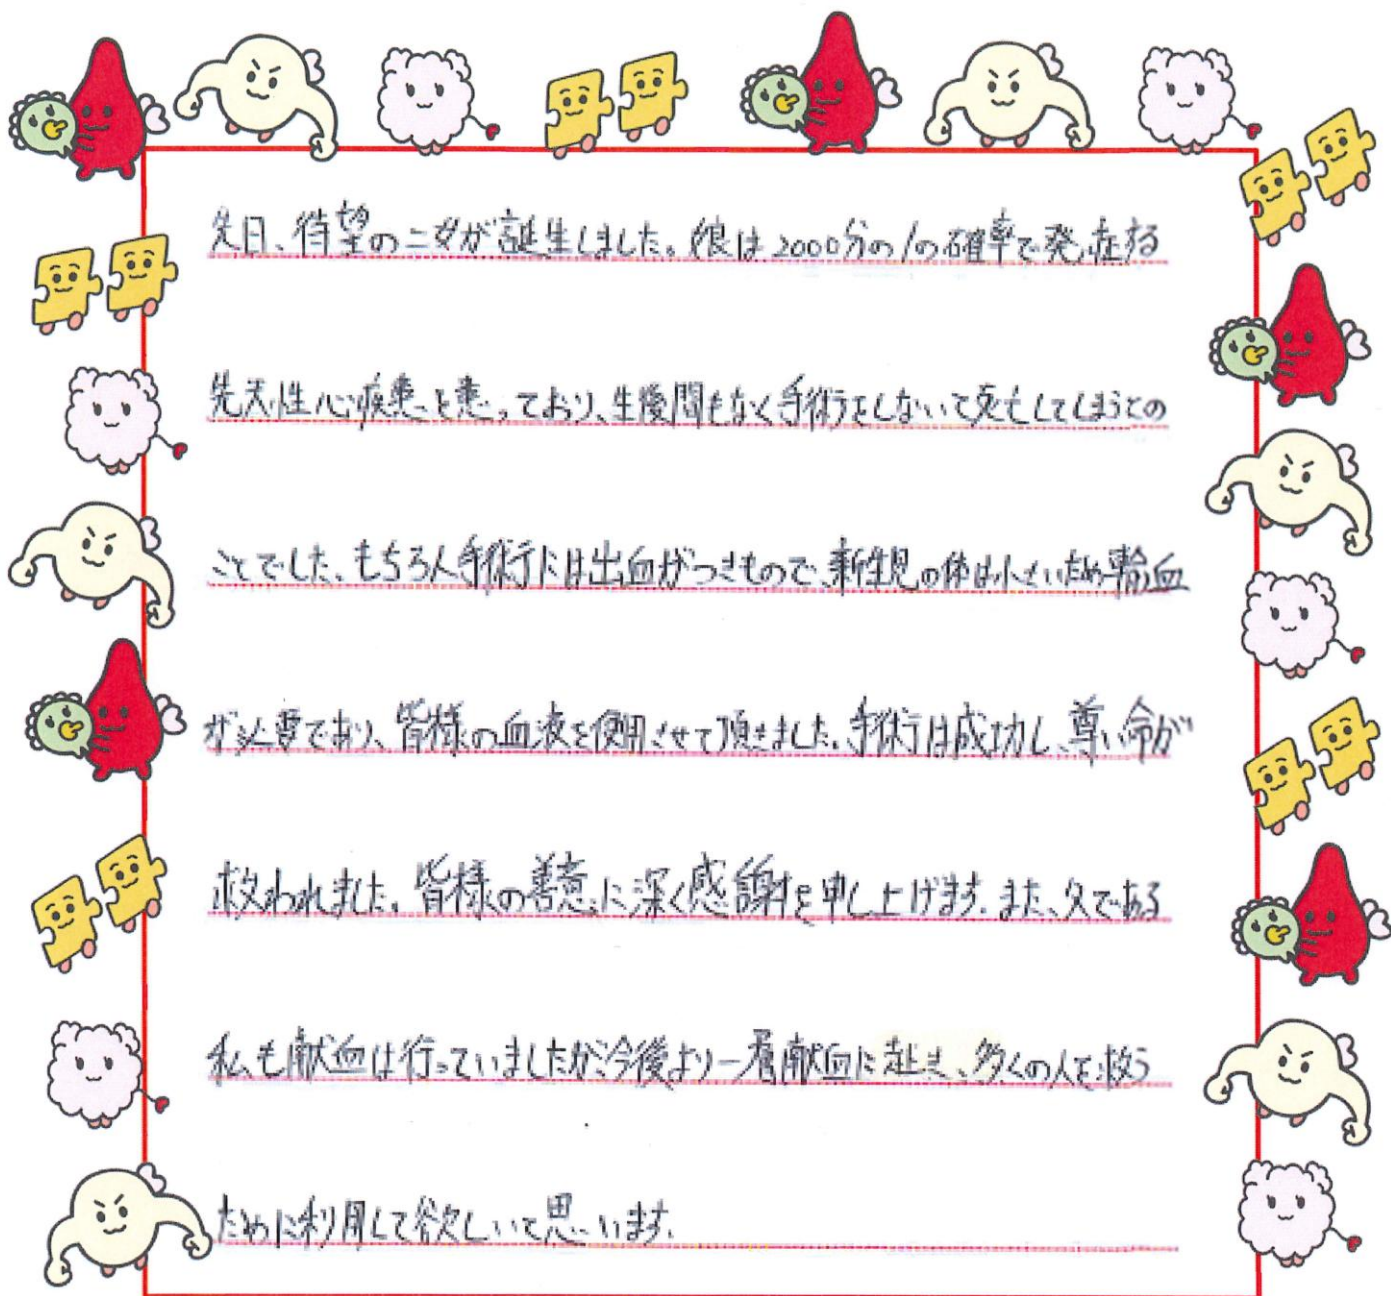 先日、待望の二女が誕生しました。娘は2000分の1の確率で発症する
先天性心疾患を患っており、生後間もなく手術をしないと死亡してしまうとの
ことでした。もちろん手術には出血がつきもので、新生児の体は小さいため輸血
が必要であり、皆様の血液を使用させて頂きました。手術は成功し、尊い命が
救われました。皆様の善意に深く感謝を申し上げます。また、父である
私も献血は行っていましたが今後より一層献血に赴き、多くの人を救う
ために利用して欲しいと思います。